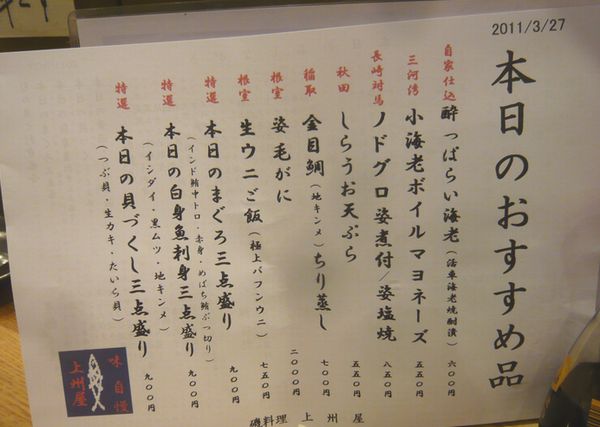 2011/3/27
本日のおすすめ品
自家仕込 酔っぱらい海老(活車海老焼酎漬) 六〇〇円
三河湾 小海老ボイルマヨネーズ 五五〇円
長崎対馬 ノドグロ姿煮付/姿塩焼 八五〇円
秋田 しらうお天ぷら 五五〇円
稲取 金目鯛(地キンメ)ちり蒸し 七〇〇円
根室 姿毛がに 二〇〇〇円
根室 生ウニご飯(極上バフンウニ) 七五〇円
特選 本日のまぐろ三点盛り 九〇〇円
(インド鮪中トロ・赤身・めばち鮪ぶつ切り)
特選 本日の白身魚刺身三点盛り 九〇〇円
(イシダイ・黒ムツ・地キンメ)
特選 本日の貝づくし三点盛り 九〇〇円
(つぶ貝・生カキ・たいら貝)
味自慢
上州屋
磯料理 上州屋